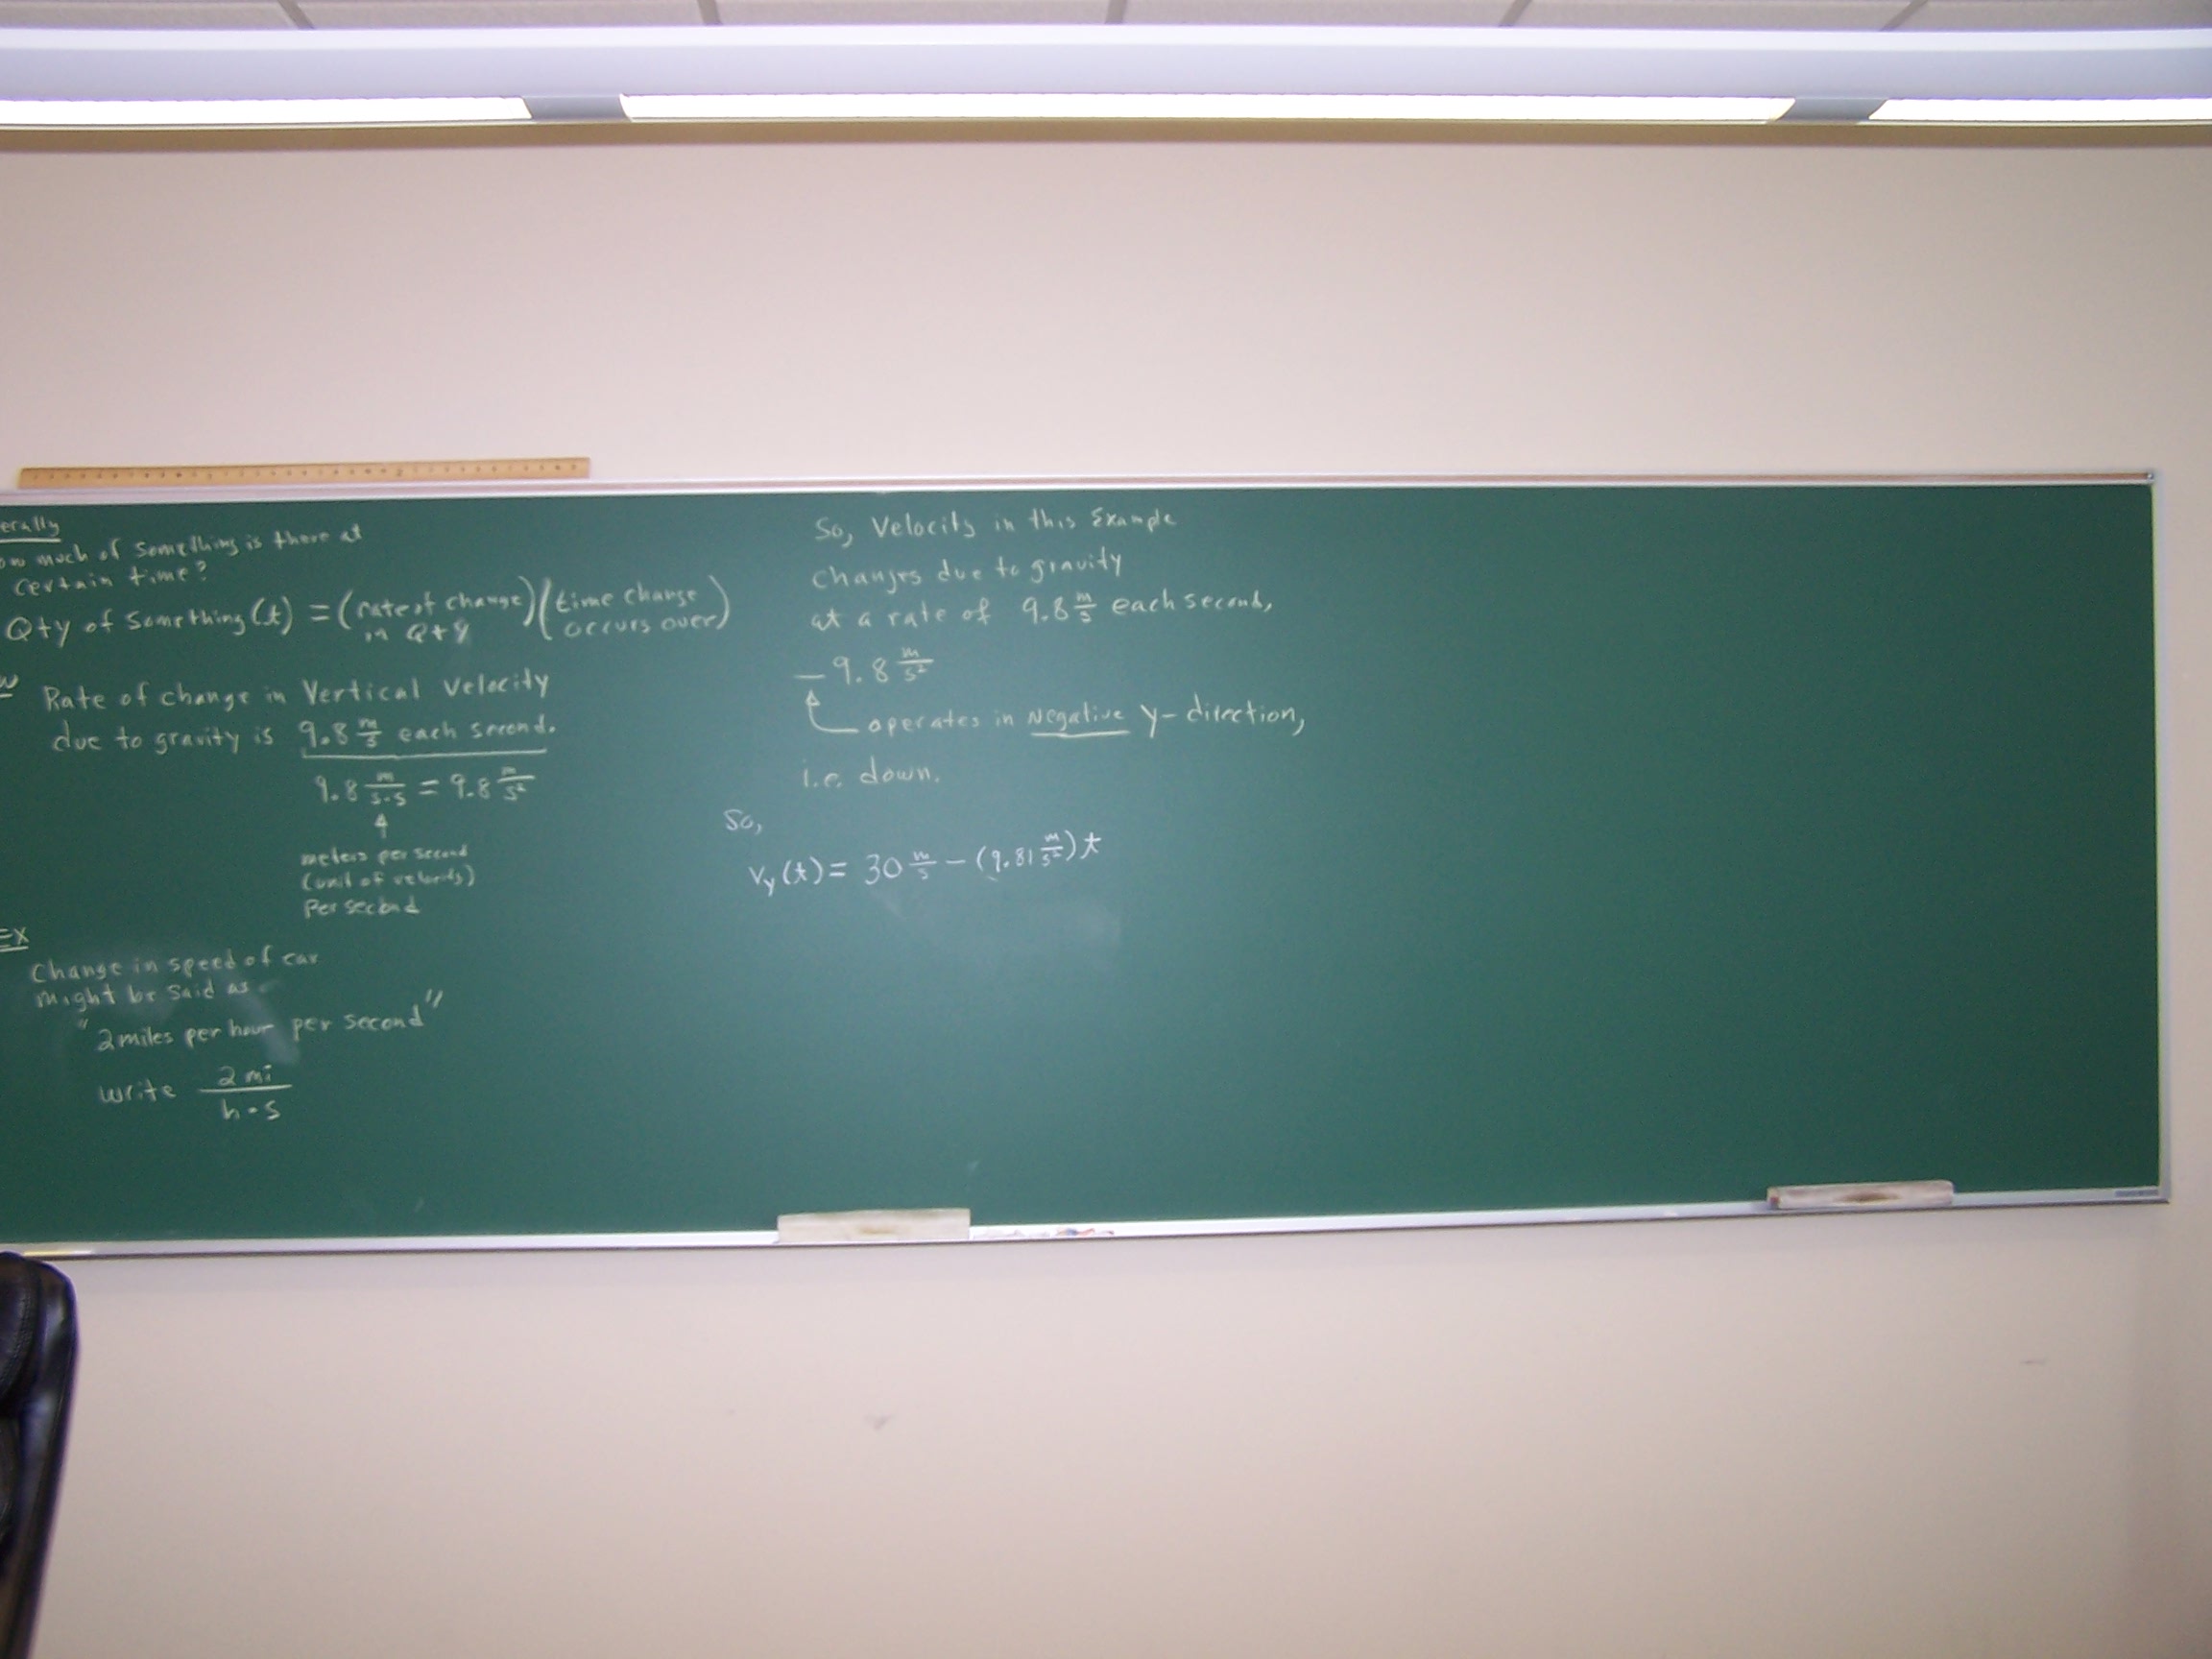 erally
ow much of something is there at
certain time?
Qty of something (t) = (rate of change in Qty) (time change occurs over)
w
Rate of change in Vertical Velocity
due to gravity is 9.8 m/s each second.
9.8 m/s·s = 9.8 m/s²
meters per second
(unit of velocity)
per second
EX
Change in speed of car
might be said as
"2 miles per hour per second"
write 2 mi / h·s
So, Velocity in this Example
changes due to gravity
at a rate of 9.8 m/s each second,
– 9.8 m/s²
operates in negative y-direction,
i.e. down.
So,
Vy(t) = 30 m/s – (9.81 m/s²) t